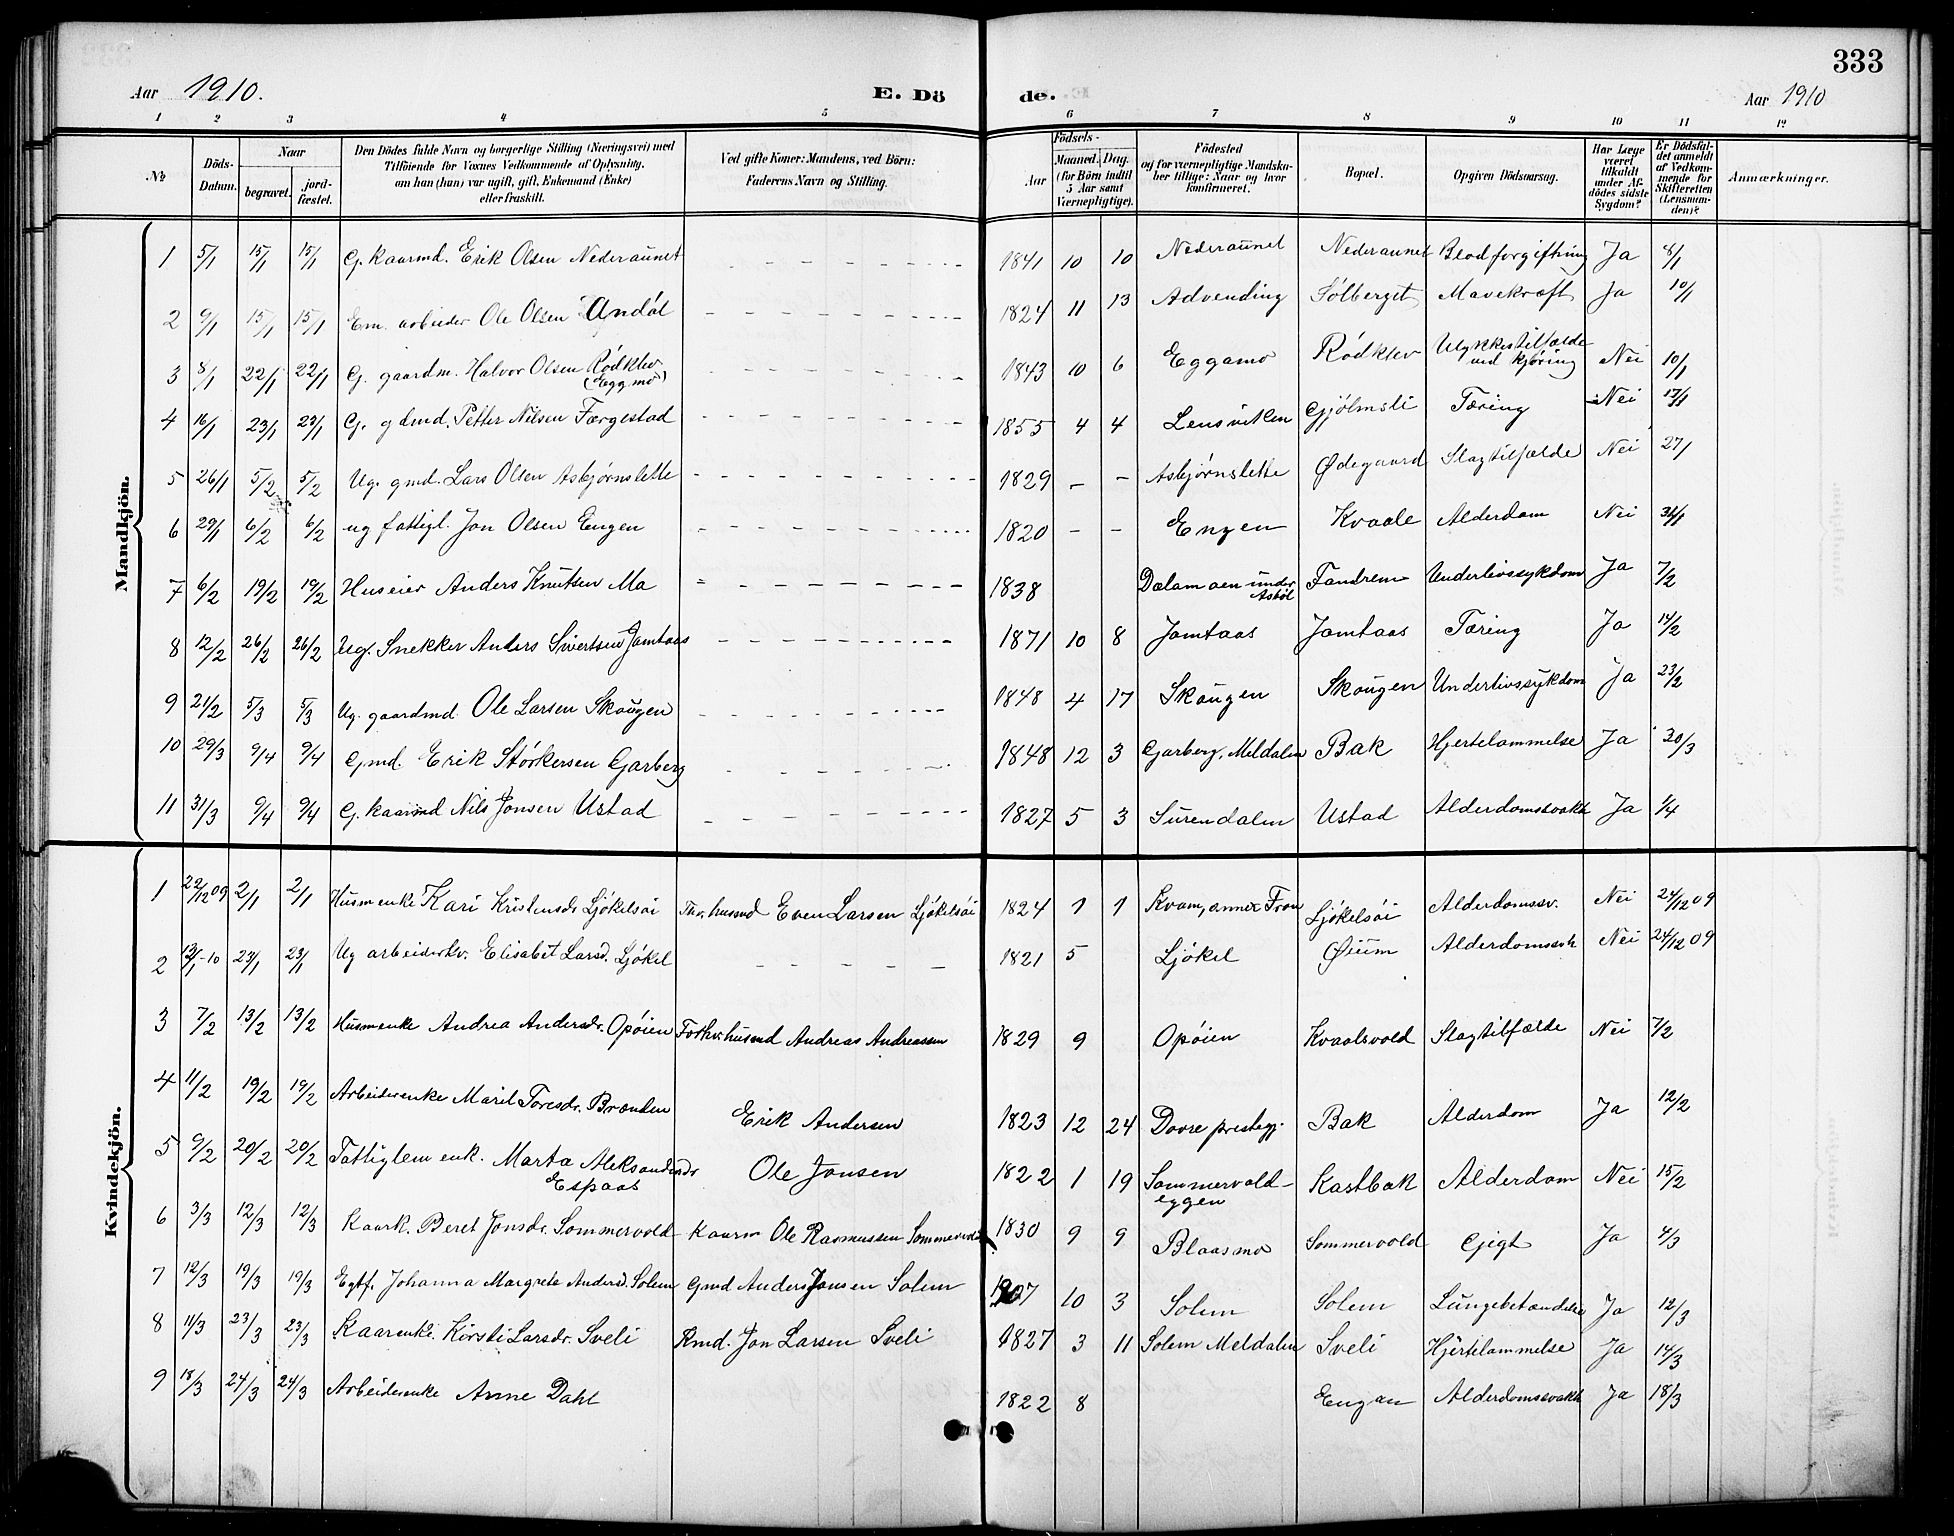 333
Aar 1910. E. Dö de. Aar 1910
1 2 3 4 5 6 7 8 9 10 11 12
No
Döds-Datum.
Naar begravet. jord-fæstet.
Den Dödes fulde Navn og borgerlige Stilling (Næringsvei) med
Tilföiende for Voxnes Vedkommende af Oplysning.
om han (hun) var ugift, gift, Enkemand (Enke)
eller fraskilt.
Ved gifte Koner: Mandens, ved Börn:
Faderens Navn og Stilling.
Födsels-
Aar Maaned. Dag.
(for Börn indtil
5 Aar samt
Værnepligtige).
Födested
og for værnepligtige Mandska-
ber tillige: Naar og hvor
konfirmeret.
Bopæl.
Opgiven Dödsaarsag.
Har Læge
været
tilkaldt
under Af-
dödes sidste
Sygdom?
Er Dödsfal-
det anmeldt
af Vedkom-
mende for
Skifteretten
(Lensman-
den)?
Anmærkninger.
Mandkjön.
1 5/1 15/1 15/1 G. kaarmd. Erik Olsen Nederaunet 1841 10 10 Nederaunet Nederaunet Blodforgiftning Ja 8/1
2 9/1 15/1 15/1 Em. arbeider Ole Olsen Undöl 1824 11 13 Advending Solberget Mavekræft Ja 10/1
3 8/1 22/1 22/1 G. gaardm. Halvor Olsen Rødklev (Eggmo) 1843 10 6 Eggamo Rödklev Ulykkestilfælde ved kjøring Nei 10/1
4 16/1 23/1 23/1 G. gdmd. Petter Nilsen Færgestad 1855 4 4 Lensviken Gjölmsli Tæring Nei 17/1
5 26/1 5/2 5/2 Ug. gmd. Lars Olsen Asbjørnslette 1829 - - Asbjørnslette Ødegaard Slagtilfælde Nei 27/1
6 29/1 6/2 6/2 ug fattigl. Jon Olsen Engen 1820 - - Engen Kvaale Alderdom Nei 31/1
7 6/2 19/2 19/2 Huseier Anders Knutsen Mo 1838 Dalamoen under Asböl Fandrem Underlivssykdom Ja 7/2
8 12/2 26/2 26/2 Ug. Snekker Anders Sivertsen Jamtaas 1871 10 8 Jamtaas Jamtaas Tæring Ja 14/2
9 21/2 5/3 5/3 Ug. gaardmd. Ole Larsen Skougen 1848 4 17 Skougen Skougen Underlivssykdom Ja 23/2
10 29/3 9/4 9/4 Gmd. Erik Störkersen Garberg 1848 12 3 Garberg, Meldalen Bak Hjertelammelse Ja 30/3
11 31/3 9/4 9/4 G. kaarmd Nils Jonsen Ustad 1827 5 3 Surendalen Ustad Alderdomssvakh Ja 1/4
Kvindekjön.
1 22/12 09 2/1 2/1 Husmenke Kari Kristensdr Ljökelsöi husmd Even Larsen Ljökelsöi 1824 1 1 Kvam, annex Fron Ljökelsöi Alderdomssv. Nei 24/12 09
2 13/1-10 23/1 23/1 Ug arbeiderkv. Elisabet Larsd. Ljökel 1821 5 Ljökel Øium Alderdomssvh Nei 24/12 09
3 7/2 13/2 13/2 Husmenke Andrea Andersdr. Opöien Forhv. husmd Andreas Andreassen 1829 9 Opöien Kvaalsvold Slagtilfælde Nei 7/2
4 11/2 19/2 19/2 Arbeiderenke Marit Toresdr. Brænden Erik Andersen 1823 12 24 Dovre prestegj. Bak Alderdom Ja 12/2
5 9/2 20/2 20/2 Fattiglem enk. Marta Aleksandersdr Espaas Ole Jonsen 1822 1 19 Sommervold-eggen Kastbak Alderdom Nei 15/2
6 3/3 12/3 12/3 Kaark. Beret Jonsdr. Sommervold Kaarm Ole Rasmussen Sommervold 1830 9 9 Blaasmo Sommervold Gigt Ja 4/3
7 12/3 19/3 19/3 Egtf. Johanna Margrete Andersd. Solem Gmd Anders Jonsen Solem 1907 10 3 Solem Solem Lungebetændelse Ja 12/3
8 11/3 23/3 23/3 Kaarenke. Kirsti Larsdr. Sveli Kmd. Jon Larsen Sveli 1827 3 11 Solem Meldalen Sveli Hjertelammelse Ja 14/3
9 18/3 24/3 24/3 Arbeiderenke Anne Dahl 1822 8 Engan Alderdomssvakh Ja 18/3